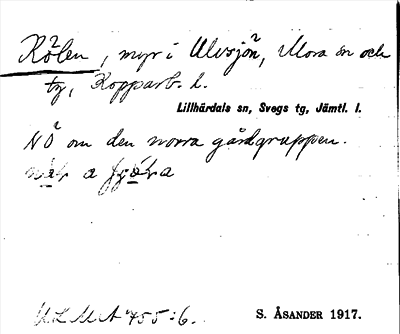 Rö²len, myr i Ulvsjön², Mora sn och
tg, Kopparb. l.
Lillhärdals sn, Svegs tg, Jämtl. l.
NÖ om den norra gårdgruppen.
a
ULMA 455:6.
S. ÅSANDER 1917.